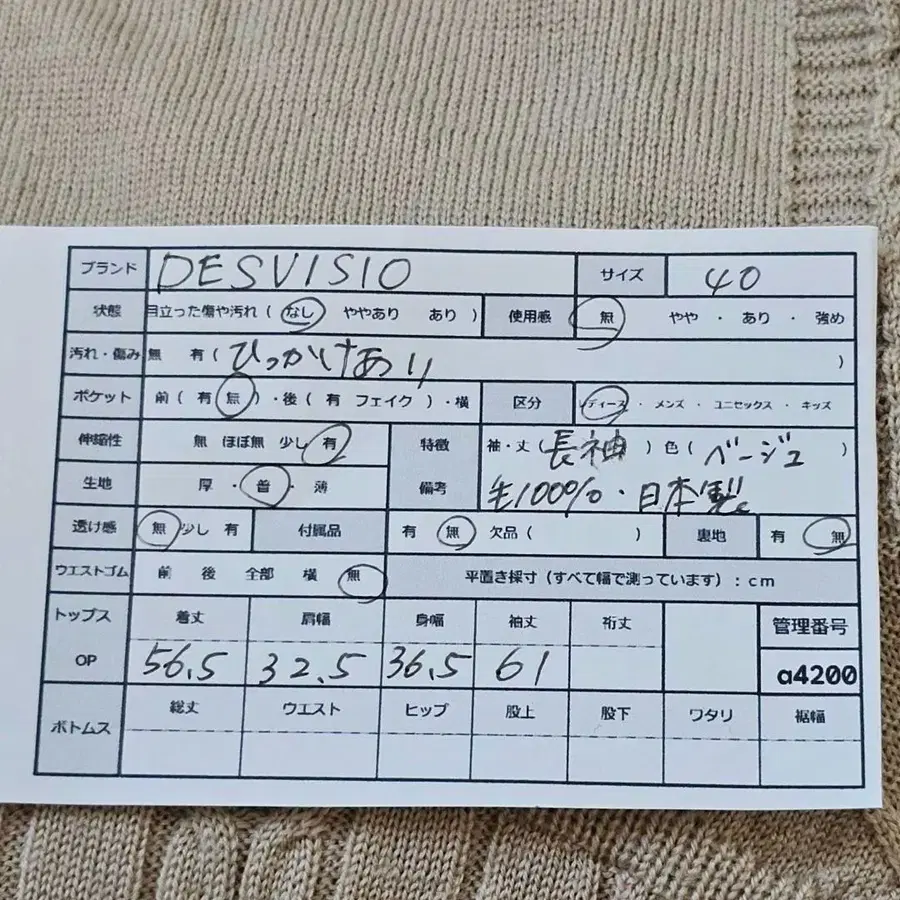 ブランド DESVISIO サイズ 40
状態 目立った傷や汚れ ( なし ややあり あり ) 使用感 無 やや ・ あり ・ 強め
汚れ・傷み 無 有 ( ひっかけあり )
ポケット 前 ( 有 無 ) ・後 ( 有 フェイク ) ・横 区分 レディース ・ メンズ ・ ユニセックス ・ キッズ
伸縮性 無 ほぼ無 少し 有 特徴 袖・丈 ( 長袖 ) 色 ( ベージュ )
生地 厚 ・ 普 ・ 薄 備考 毛100%・日本製。
透け感 無 少し 有 付属品 有 無 欠品 ( ) 裏地 有 無
ウエストゴム 前 後 全部 横 無 平置き採寸 (すべて幅で測っています) : cm
トップス 着丈 肩幅 身幅 袖丈 裄丈 管理番号
OP 56.5 32.5 36.5 61 a4200
ボトムス 総丈 ウエスト ヒップ 股上 股下 ワタリ 裾幅